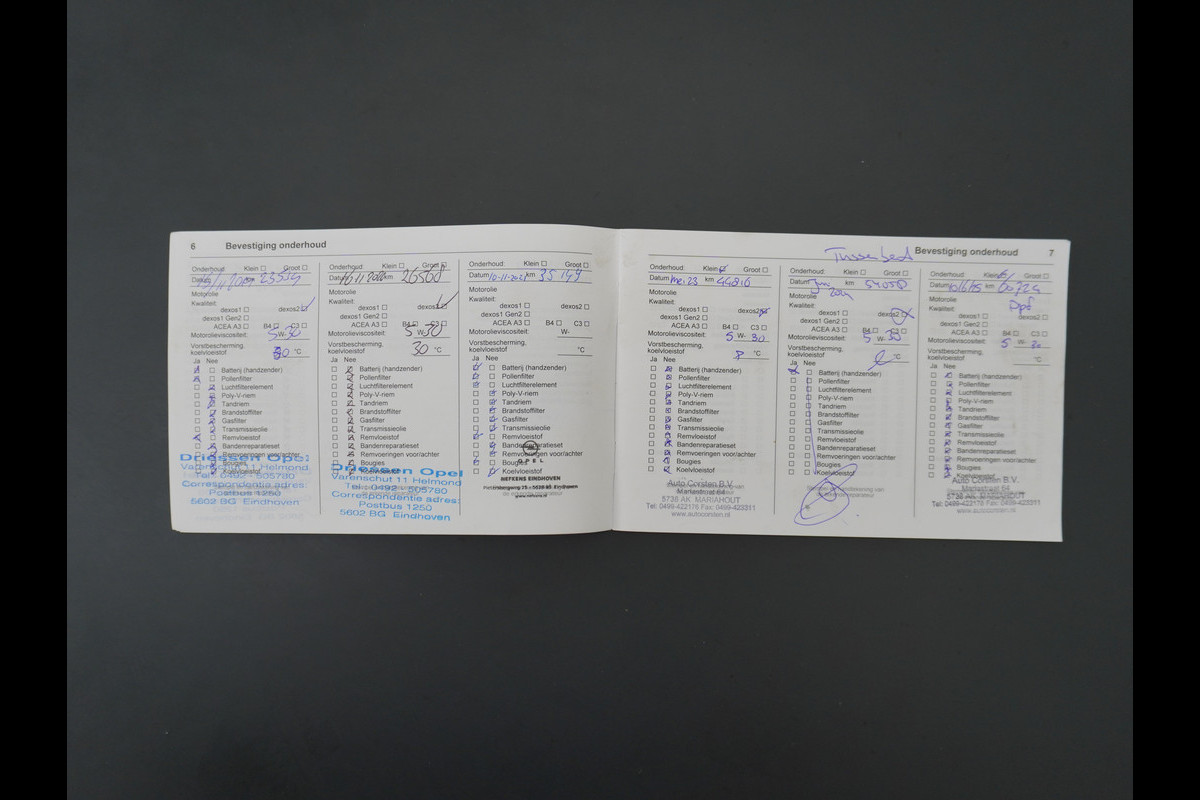 6 Bevestiging onderhoud
Onderhoud: Klein ☐ Groot ☐
Datum km 23534
Motorolie
Kwaliteit:
dexos1 ☐ dexos2 ☑
dexos1 Gen2 ☐
ACEA A3 ☐ B4 ☐ C3 ☐
Motorolieviscositeit: 5 W- 30
Vorstbescherming,
koelvloeistof 30 °C
Ja Nee
Batterij (handzender)
Pollenfilter
Luchtfilterelement
Poly-V-riem
Tandriem
Brandstoffilter
Gasfilter
Transmissieolie
Remvloeistof
Bandenreparatieset
Remvoeringen voor/achter
Driessen Opel
Varenschut 11 Helmond
Tel. 0492 - 505780
Correspondentie adres:
Postbus 1250
5602 BG Eindhoven
Onderhoud: Klein ☐ Groot ☐
Datum 16/11 2020 km 26508
Motorolie
Kwaliteit:
dexos1 ☐ dexos2 ☑
dexos1 Gen2 ☐
ACEA A3 ☐ B4 ☐ C3 ☐
Motorolieviscositeit: 5 W- 30
Vorstbescherming,
koelvloeistof 30 °C
Ja Nee
Batterij (handzender)
Pollenfilter
Luchtfilterelement
Poly-V-riem
Tandriem
Brandstoffilter
Gasfilter
Transmissieolie
Remvloeistof
Bandenreparatieset
Remvoeringen voor/achter
Bougies
Driessen Opel
Varenschut 11 Helmond
Tel. 0492 - 505780
Correspondentie adres:
Postbus 1250
5602 BG Eindhoven
Onderhoud: Klein ☐ Groot ☐
Datum 10-11-2021 km 35149
Motorolie
Kwaliteit:
dexos1 ☐ dexos2 ☐
dexos1 Gen2 ☐
ACEA A3 ☐ B4 ☐ C3 ☐
Motorolieviscositeit: W-
Vorstbescherming,
koelvloeistof °C
Ja Nee
Batterij (handzender)
Pollenfilter
Luchtfilterelement
Poly-V-riem
Tandriem
Brandstoffilter
Gasfilter
Transmissieolie
Remvloeistof
Bandenreparatieset
Remvoeringen voor/achter
Bougies
OPEL
Koelvloeistof
HEFKENS EINDHOVEN
Bevestiging onderhoud 7
Onderhoud: Klein ☑ Groot ☐
Datum mei 23 km 44816
Motorolie
Kwaliteit:
dexos1 ☐ dexos2 ☑
dexos1 Gen2 ☐
ACEA A3 ☐ B4 ☐ C3 ☐
Motorolieviscositeit: 5 W- 30
Vorstbescherming,
koelvloeistof °C
Ja Nee
Batterij (handzender)
Pollenfilter
Luchtfilterelement
Poly-V-riem
Tandriem
Brandstoffilter
Gasfilter
Transmissieolie
Remvloeistof
Bandenreparatieset
Remvoeringen voor/achter
Bougies
Koelvloeistof
Auto Corsten B.V.
Mariastraat 64
5738 AK MARIAHOUT
Tel: 0499-422176 Fax: 0499-423311
www.autocorsten.nl
Onderhoud: Klein ☐ Groot ☐
Datum km 54050
Motorolie
Kwaliteit:
dexos1 ☐ dexos2 ☑
dexos1 Gen2 ☐
ACEA A3 ☐ B4 ☐ C3 ☐
Motorolieviscositeit: 5 W- 30
Vorstbescherming,
koelvloeistof °C
Ja Nee
Batterij (handzender)
Pollenfilter
Luchtfilterelement
Poly-V-riem
Tandriem
Brandstoffilter
Gasfilter
Transmissieolie
Remvloeistof
Bandenreparatieset
Remvoeringen voor/achter
Bougies
Koelvloeistof
Onderhoud: Klein ☑ Groot ☐
Datum km 60729
Motorolie
Kwaliteit:
dexos1 ☐ dexos2 ☐
dexos1 Gen2 ☐
ACEA A3 ☐ B4 ☐ C3 ☐
Motorolieviscositeit: 5 W- 30
Vorstbescherming,
koelvloeistof °C
Ja Nee
Batterij (handzender)
Pollenfilter
Luchtfilterelement
Poly-V-riem
Tandriem
Brandstoffilter
Gasfilter
Transmissieolie
Remvloeistof
Bandenreparatieset
Remvoeringen voor/achter
Bougies
Koelvloeistof
Auto Corsten B.V.
Mariastraat 64
5738 AK MARIAHOUT
Tel: 0499-422176 Fax: 0499-423311
www.autocorsten.nl